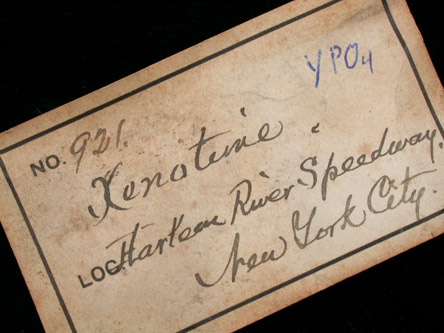 YPO4
NO. 921.
Xenotime.
LOC. Harlem River Speedway.
New York City.